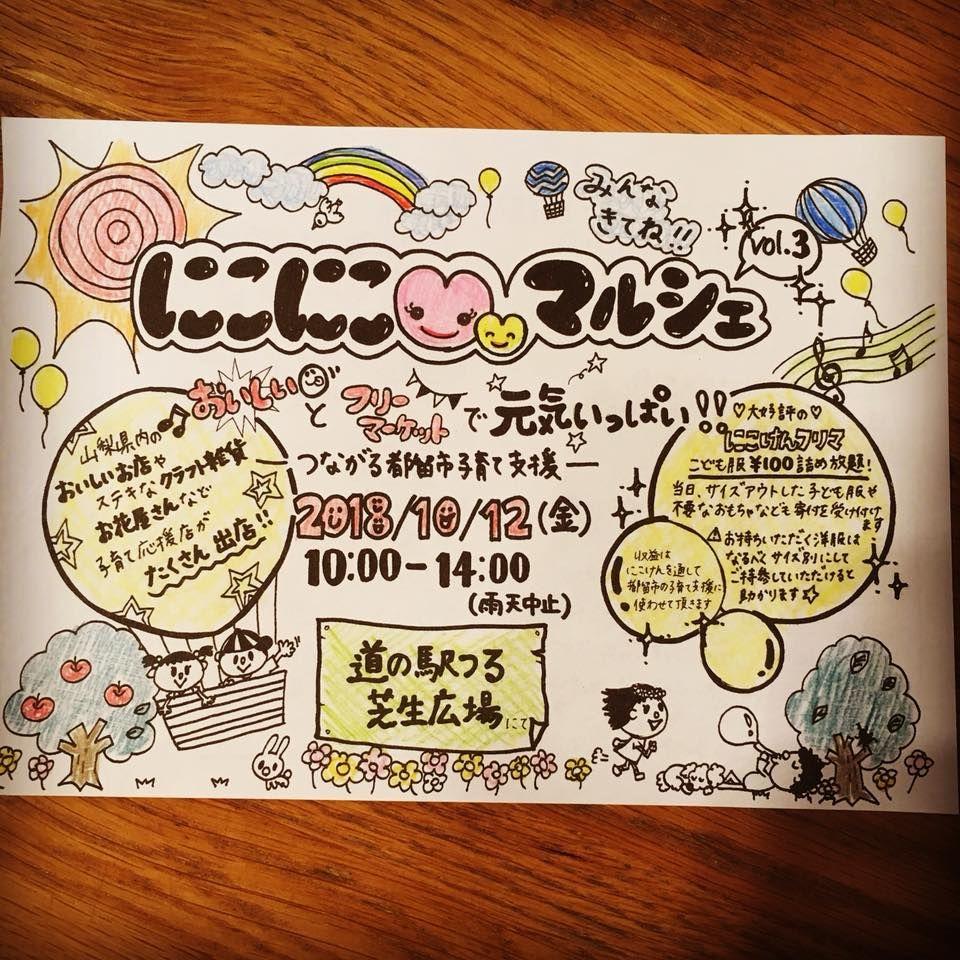 みんな
きてね!!
vol.3
にこにこマルシェ
おいしいと
フリー
マーケット
で元気いっぱい!!
つながる都留市子育て支援
2018/10/12(金)
10:00-14:00
(雨天中止)
山梨県内の
おいしいお店や
ステキなクラフト雑貨
お花屋さんなど
子育て応援店が
たくさん出店!!
♡大好評の♡
にこけんフリマ
こども服¥100詰め放題!
当日、サイズアウトした子ども服や
不要なおもちゃなども寄付を受け付け
ます
⚠お持ちいただく洋服は
なるべくサイズ別にして
ご持参していただけると
助かります☆
収益は
にこけんを通して
都留市の子育て支援に
使わせて頂きます
道の駅つる
芝生広場にて